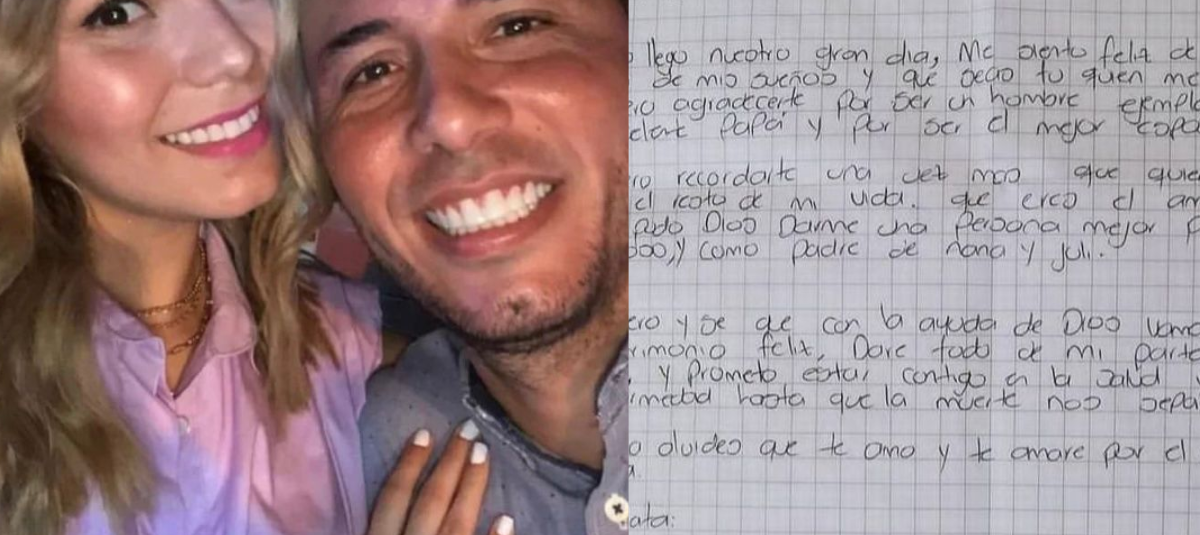 llego nuestro gran dia, Me siento feliz de
de mis sueños y que seas tu quien me
agradecerte por ser un hombre
Papá y por ser el mejor
recordarte una vez mas que
el resto de mi vida. que eres el
Dios Darme una Persona mejor
y como padre de nana y juli.
y se que con la ayuda de Dios
feliz, Dare todo de mi parte
y Prometo estar contigo en la salud
hasta que la muerte nos
olvides que te amo y te amare por el